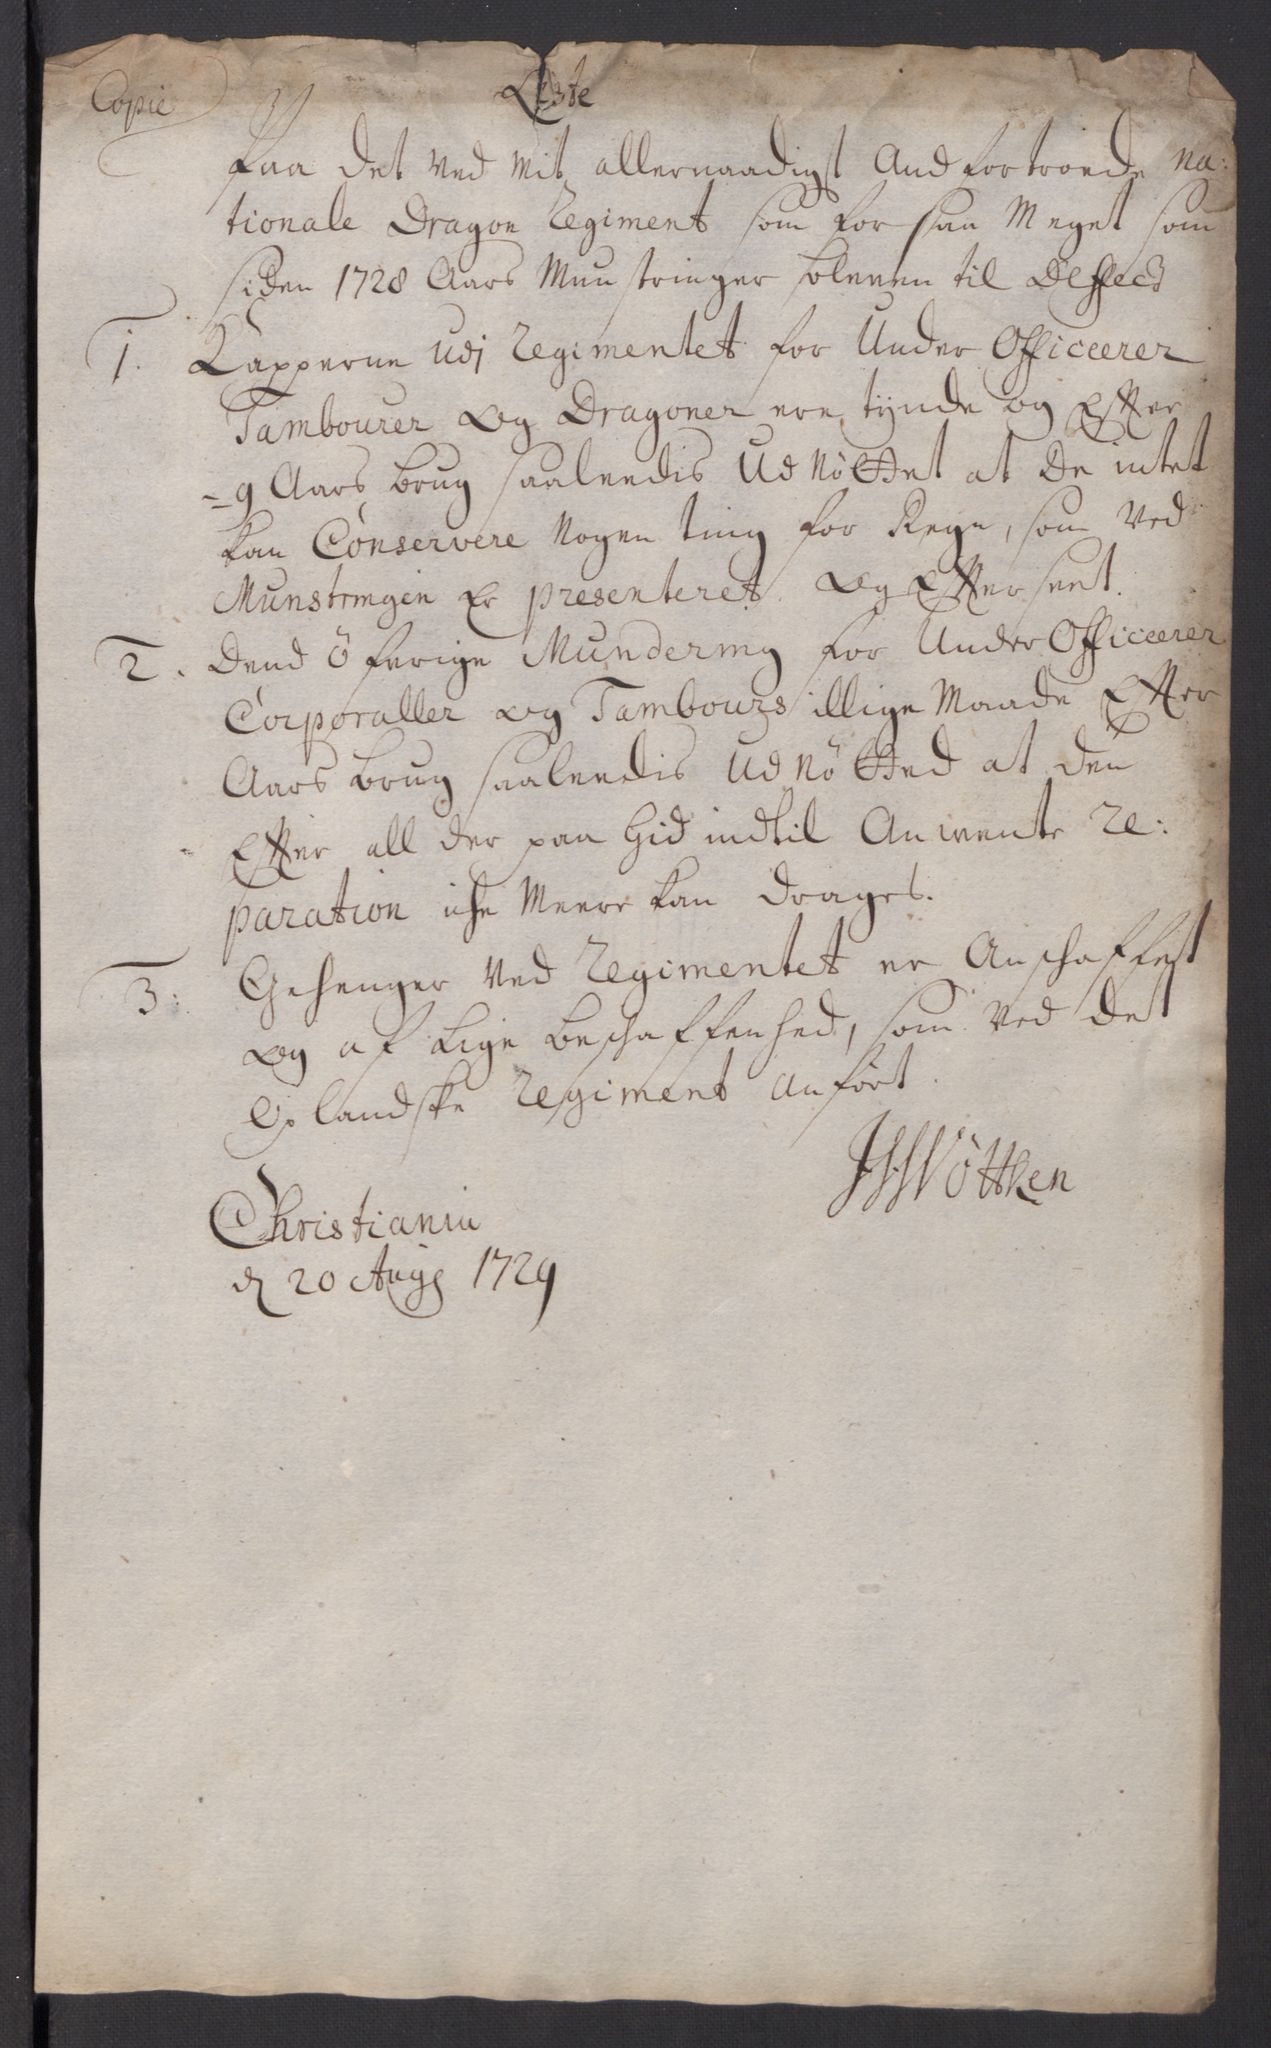 Copie
Liste
Paa Det Ved Mit allernaadigst Andfortroede Na:
tionale Dragon Regiment som for saa Meget som
siden 1728 Aars Munstringer bleven til Deffect
1. Kapperne Udj Regimentet for Under Officeerer
Tambourer Og Dragoner ere tynde og Efter
- 9 Aars brug saaleedis Ud Nöttet at De intet
kan Conservere Nogen ting for Regn, som Ved
Munstringen Er presenteret Og Efterseet.
2. Dend öferige Mundering for Under Officeerer
Corporaller Og Tambours illige Maade Efter
Aars brug saaleedis Ud Nötted at den
Efter all der paa hid indtil Anwente Re:
paration iche Meere kan drages.
3: Gehenger Ved Regimentet er Anschaffet
Og af lige beschaffenhed, som Ved det
Oplandske Regiment anfört.
Wöttken
Christiania
d 20 Aug 1729